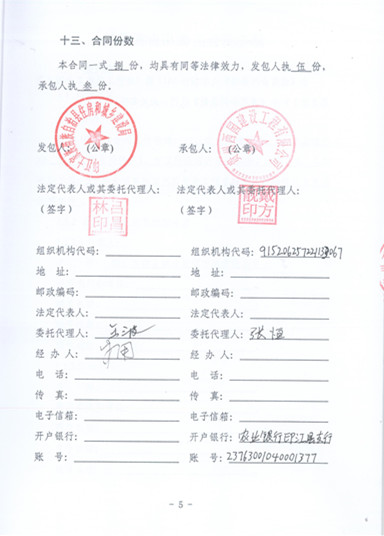 十三、合同份数
本合同一式 捌 份，均具有同等法律效力，发包人执 伍 份，
承包人执 叁 份。
发包人：（公章） 承包人：（公章）
法定代表人或其委托代理人： 法定代表人或其委托代理人：
（签字） （签字）
组织机构代码： 组织机构代码：
地 址： 地 址：
邮政编码： 邮政编码：
法定代表人： 法定代表人：
委托代理人： 委托代理人：张恒
经 办 人： 经 办 人：
电 话： 电 话：
传 真： 传 真：
电子信箱： 电子信箱：
开户银行： 开户银行：农业银行印江县支行
账 号： 账 号：23763001040001377
- 5 -